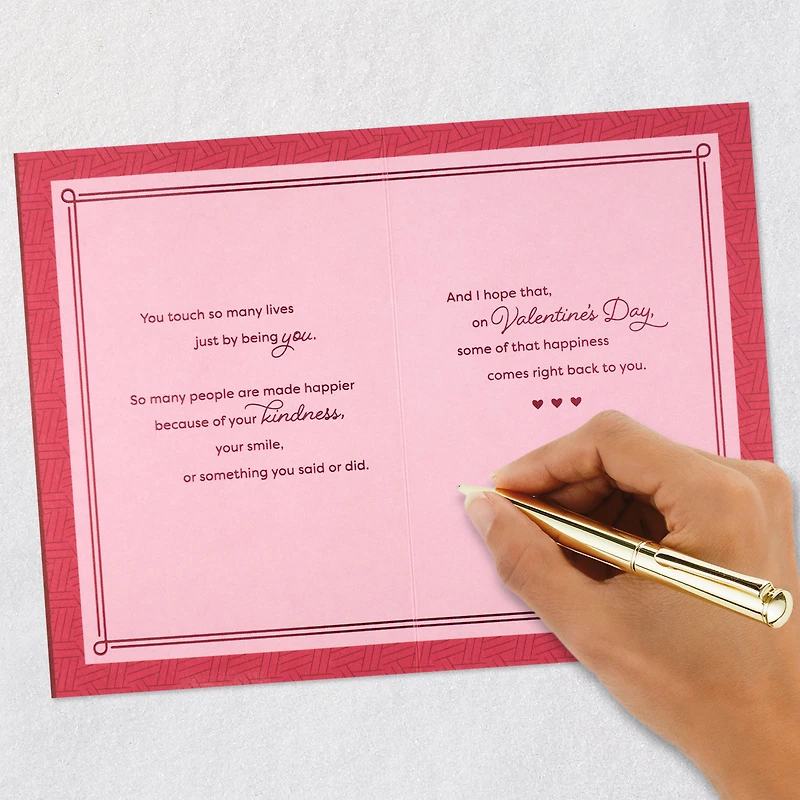 You touch so many lives
just by being you.
So many people are made happier
because of your kindness,
your smile,
or something you said or did.
And I hope that,
on Valentine's Day,
some of that happiness
comes right back to you.